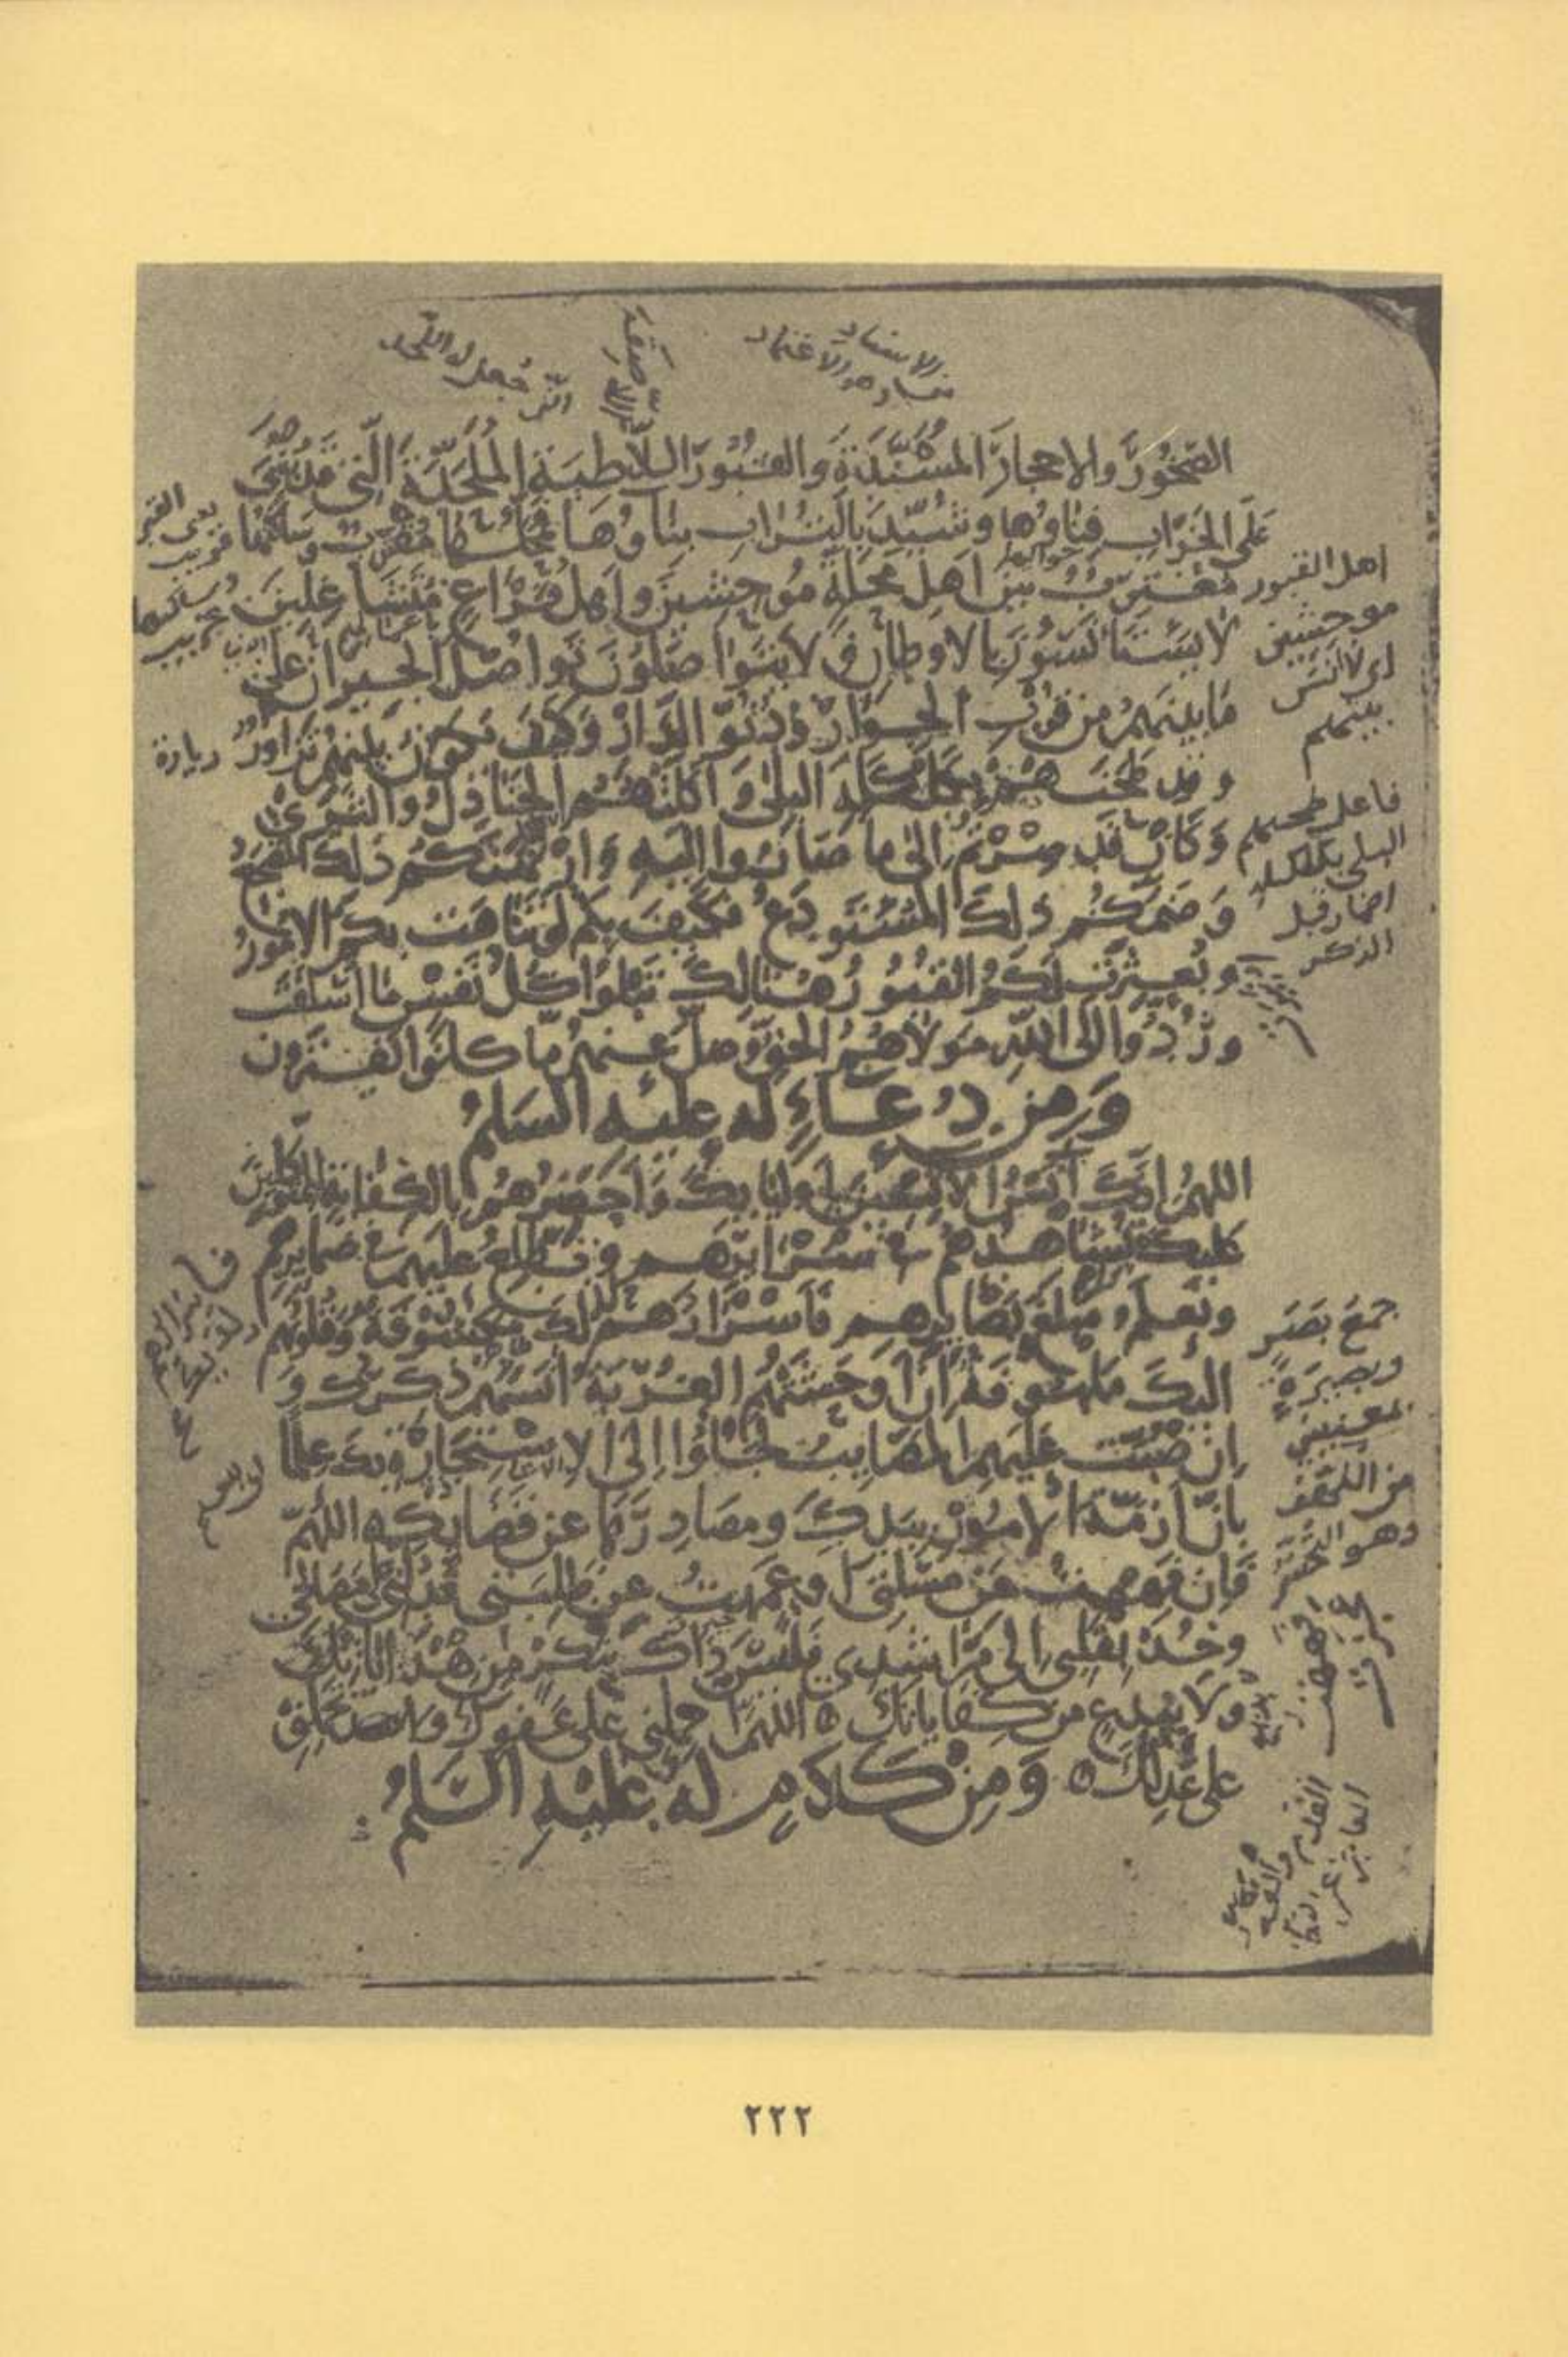 الصخور والاحجار المسندة والقبور اللاطية الملحدة التي قد بني
على الخراب فناؤها وشيد بالتراب بناؤها فمحلها مقترب وساكنها
مغترب بين اهل محلة موحشين واهل فراغ متشاغلين
لا يستانسون بالاوطان ولا يتواصلون تواصل الجيران على
ما بينهم من قرب الجوار ودنو الدار وكيف يكون بينهم تزاور
وقد طحنهم بكلكله البلى واكلتهم الجنادل والثرى
وكان قد صرتم الى ما صاروا اليه وارتهنكم ذلك المضجع
وضمكم ذلك المستودع فكيف بكم لو تناهت بكم الامور
وبعثرت لكم القبور هنالك تبلوا كل نفس ما اسلفت
وردوا الى الله مولاهم الحق وضل عنهم ما كانوا يفترون
ومن دعاء له عليه السلم
اللهم انك آنس الانسين لاوليائك واحضرهم بالكفاية للمتوكلين
عليك تشاهدهم في سرائرهم وتطلع عليهم في ضمايرهم
وتعلم مبلغ بصايرهم فاسرارهم لك مكشوفة وقلوبهم
اليك ملهوفة ان اوحشتهم الغربة آنسهم ذكرك و
ان صبت عليهم المصايب لجاؤا الى الاستجارة بك علما
بان ازمة الامور بيدك ومصادرها عن قضايك اللهم
فان فههت عن مسلتى او عمهت عن طلبتى فدلني على مصالحي
وخذ بقلبي الى مراشدى فليس ذاك بنكر من هداياتك
ولا ببدع من كفاياتك اللهم احملني على عفوك ولا تحملني
على عدلك ومن كلام له عليه السلم
اهل القبور
موحشين
اى لا انس
بينهم
فاعل طحنهم
البلى بكلكله
اضمار قبل
الذكر
يعنى القبر
قريب
وساكنها
غريب
زيارة
جمع بصر
وبصيرة
بمعنيين
من اللهف
وهو التحسر
٢٢٢